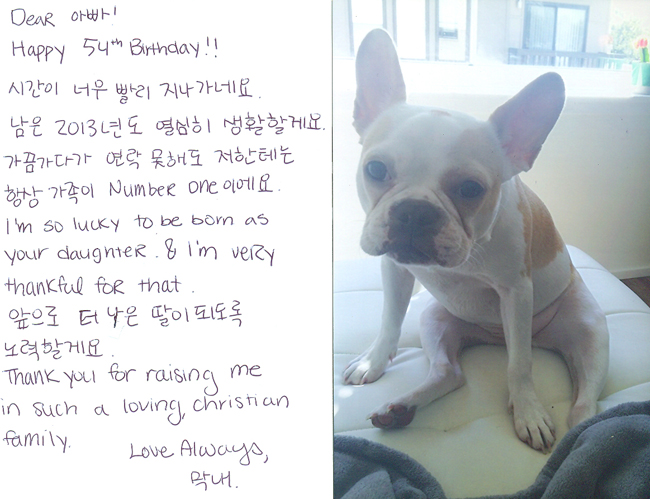 Dear 아빠!
Happy 54th Birthday!!
시간이 너무 빨리 지나가네요.
남은 2013년도 열심히 생활할게요.
가끔가다가 연락 못해도 저한테는
항상 가족이 Number one이에요.
I'm so lucky to be born as
your daughter. & I'm very
thankful for that.
앞으로 더 나은 딸이 되도록
노력할게요.
Thank you for raising me
in such a loving, christian
family.
Love Always,
막내.